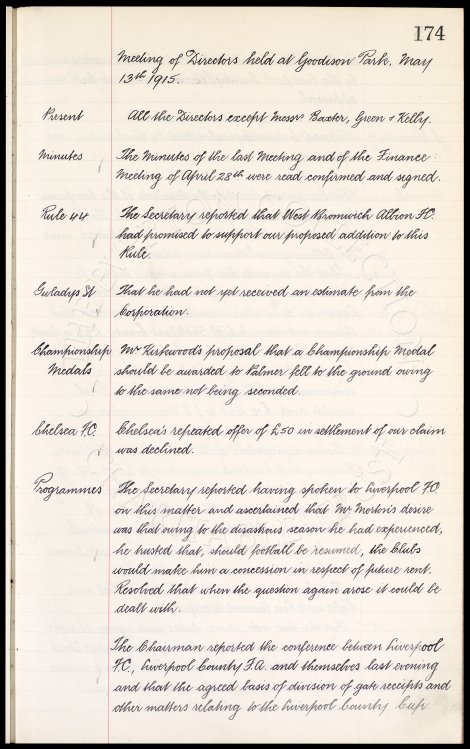 174
Meeting of Directors held at Goodison Park. May
13th 1915.
Present All the Directors except Messrs Baxter, Green & Kelly.
Minutes The Minutes of the last Meeting and of the Finance
Meeting of April 28th were read confirmed and signed.
Rule 44 The Secretary reported that West Bromwich Albion F.C.
had promised to support our proposed addition to this
Rule.
Gwladys St That he had not yet received an estimate from the
Corporation.
Championship Mr Kirkwood's proposal that a Championship Medal
Medals should be awarded to Palmer fell to the ground owing
to the same not being seconded
Chelsea F.C. Chelsea's repeated offer of £50 in settlement of our claim
was declined.
Programmes The Secretary reported having spoken to Liverpool F.C.
on this matter and ascertained that Mr Morton's desire
was that owing to the disastrous season he had experienced,
he trusted that, should football be resumed, the Clubs
would make him a concession in respect of future rent.
Resolved that when the question again arose it could be
dealt with.
The Chairman reported the conference between Liverpool
F.C., Liverpool County F.A. and themselves last evening
and that the agreed basis of division of gate receipts and
other matters relating to the Liverpool County Cup